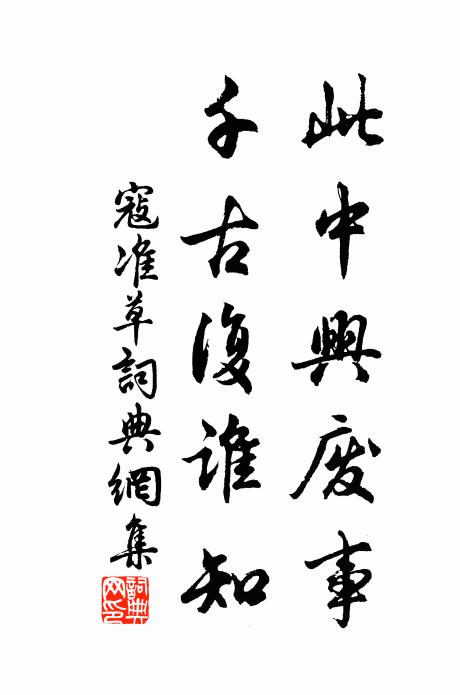 此中興廢事
千古復誰知
寇准草詞典網集
詞典网印